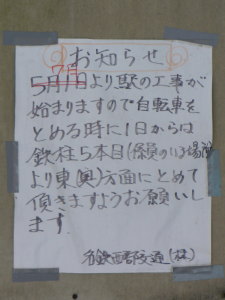 お知らせ
7日
5月1日より駅の工事が
始まりますので自転車を
とめる時に1日からは
鉄柱5本目(のいる場所)
より東(奥)方面にとめて
頂きますようお願いし
ます。
名鉄西部交通(株)